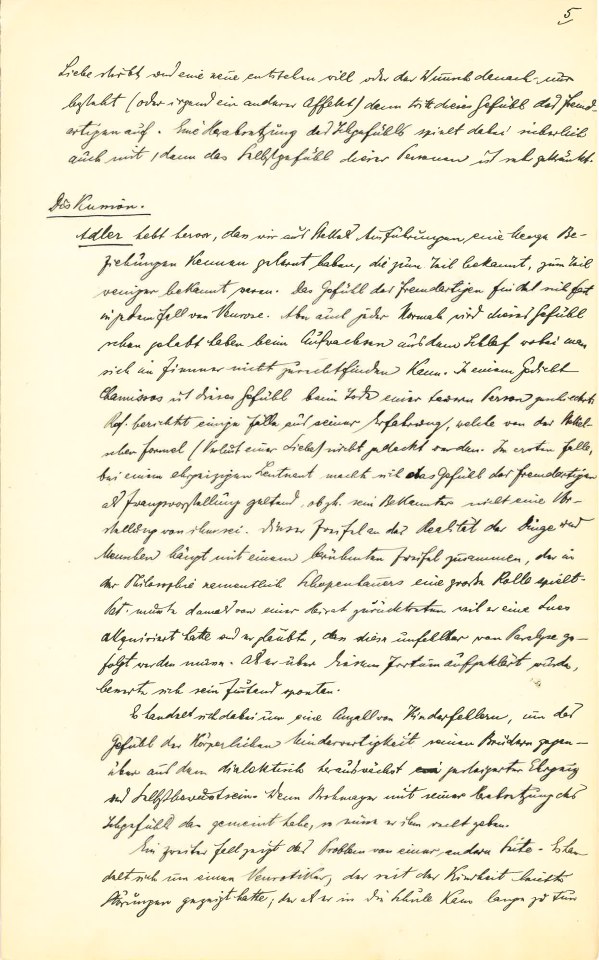 5
Liebe stirbt und eine neue entstehen will oder der Wunsch danach nur
besteht (oder irgend ein anderer Affekt) dann tritt dieses Gefühl des Fremd-
artigen auf. Eine Herabsetzung des Ichgefühls spielt dabei sicherlich
auch mit, denn das Selbstgefühl dieser Personen ist sehr gekränkt.
Diskussion.
Adler hebt hervor, dass wir aus Ausführungen, eine Menge Be-
ziehungen kennen gelernt haben, die zum Teil bekannt, zum Teil
weniger bekannt waren. Das Gefühl des Fremdartigen findet sich fast
in jedem Fall von Neurose. Aber auch jeder Normale wird dieses Gefühl
schon gehabt haben beim Aufwachen aus dem Schlaf wobei man
sich im Zimmer nicht zurechtfinden kann. In einem Gedicht
Chamissos ist dieses Gefühl beim Tode einer teueren Person
Ref. berichtet einige Fälle aus seiner Erfahrung, welche von der
Formel (Verlust einer Liebe) nicht gedeckt werden. Im ersten Falle,
bei einem ehrgeizigen Leutnant machte sich das Gefühl des Fremdartigen
als Zwangsvorstellung geltend, ob sein Bekannter nicht eine Vor-
stellung von ihm sei. Dieser Zweifel an der Realität der Dinge und
Menschen hängt mit einem berühmten Zweifel zusammen, der in
der Philosophie namentlich Schopenhauers eine große Rolle spielt.
Pat. musste damals von einer Heirat zurücktreten weil er eine Lues
akquiriert hatte und er glaubte, dass diese unfehlbar von Paralyse ge-
folgt werden müsse. Als er über diesen Irrtum aufgeklärt wurde,
besserte sich sein Zustand spontan.
Es handelt sich dabei um eine Anzahl von Kinderfehlern, um das
Gefühl der körperlichen Minderwertigkeit seinen Brüdern gegen-
über aus dem dialektisch herauswächst gesteigerter Ehrgeiz
und Selbstbewusstsein. Wenn mit seiner Herabsetzung des
Ichgefühls das gemeint habe, so müsse er ihm recht geben.
Ein zweiter Fall zeigt das Problem von einer andern Seite. Es han-
delt sich um einen Neurotiker, der seit der Kindheit
Störungen gezeigt hatte; der als er in die Schule kam lange zu tun